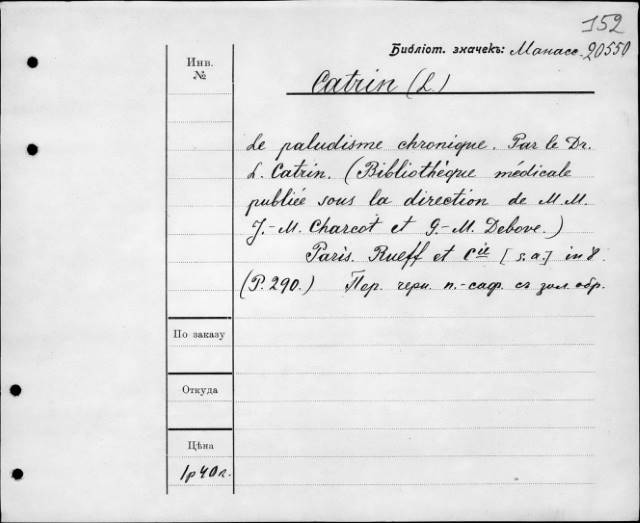 152
Библіот. значекъ: Манасс. 20550
Инв.
№
Catrin (L.)
Le paludisme chronique. Par le Dr.
L. Catrin. (Bibliothèque médicale
publiée sous la direction de M.M.
J.-M. Charcot et G.-M. Debove.)
Paris. Rueff et Cie [s.a.] in 8.
(P. 290.) Пер. черн. п.-саф. съ зол. обр.
По заказу
Откуда
Цѣна
1р 40к.